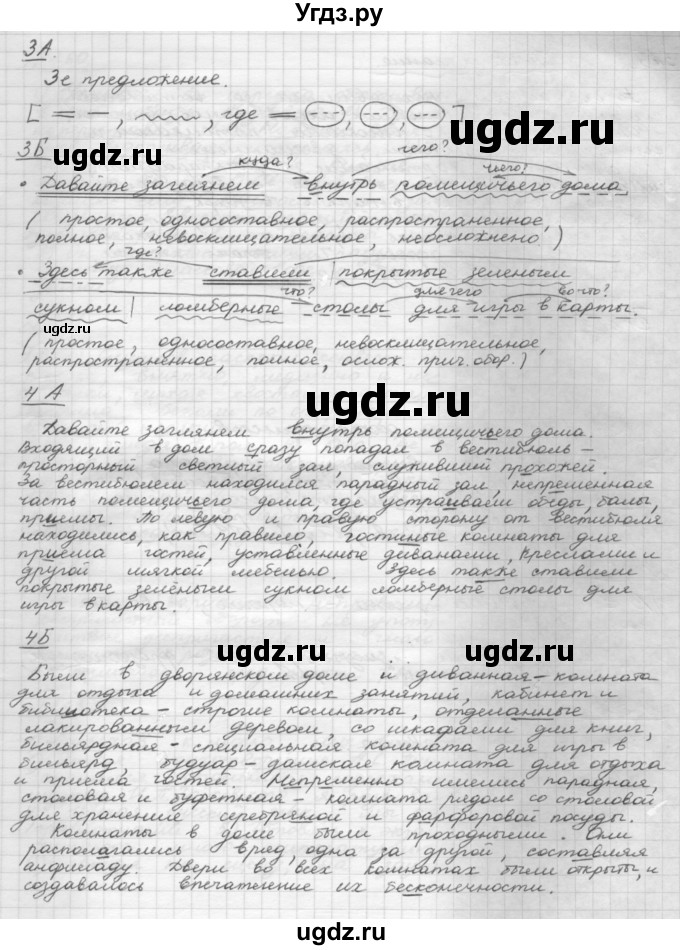 Угдз.ру
3А.
3е предложение.
[ = – , ﹏﹏ , где = ---, ---, --- ]
ugdz.ru
ugdz.ru
3Б
куда? чего? чьего?
• Давайте заглянем внутрь помещичьего дома.
( простое, односоставное, распространенное,
полное, невосклицательное, неосложнено )
где?
• Здесь также ставили | покрытые зеленым
что? для чего во что?
сукном | ломберные столы для игры в карты.
ugdz.ru
( простое, односоставное, невосклицательное,
распространенное, полное, ослож. прич. обор. )
ugdz.ru
4 А
ugdz.ru
Давайте заглянем внутрь помещичьего дома.
Входящий в дом сразу попадал в вестибюль –
просторный светлый зал, служивший прохожей.
За вестибюлем находился парадный зал, непременная
часть помещичьего дома, где устраивали обеды, балы,
приемы. По левую и правую сторону от вестибюля
находились, как правило, гостиные комнаты для
приема гостей, уставленные диванами, креслами и
другой мягкой мебелью. Здесь также ставили
покрытые зелёным сукном ломберные столы для
игры в карты.
ugdz.ru
ugdz.ru
ugdz.ru
4Б
ugdz.ru
Были в дворянском доме и диванная – комната
для отдыха и домашних занятий, кабинет и
библиотека – строгие комнаты, отделанные
лакированным деревом, со шкафами для книг,
бильярдная – специальная комната для игры в
бильярд, будуар – дамская комната для отдыха
и приема гостей. Непременно имелись парадная,
столовая и буфетная – комната рядом со столовой
для хранения серебряной и фарфоровой посуды.
ugdz.ru
ugdz.ru
Комнаты в доме были проходными. Они
располагались в ряд, одна за другой, составляя
анфиладу. Двери во всех комнатах были открыты, и
создавалось впечатление их бесконечности.
ugdz.ru
ugdz.ru